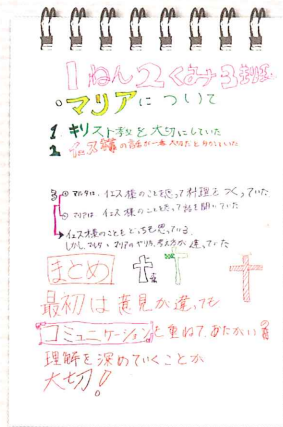 1ねん2くみ 3
○マリアについて
1. キリスト教を大切にしていた
2. イエス様の話が一番大切だと
① マルタは、イエス様のことを思って料理をつくっていた
② マリアは、イエス様のことを思って話を聞いていた
→イエス様のことをどっちも思っている。
しかし、マルタとマリアのやり方、考え方が違っていた
まとめ
最初は意見が違っても
コミュニケーションを重ねて、あたがい
理解を深めていくことが
大切!